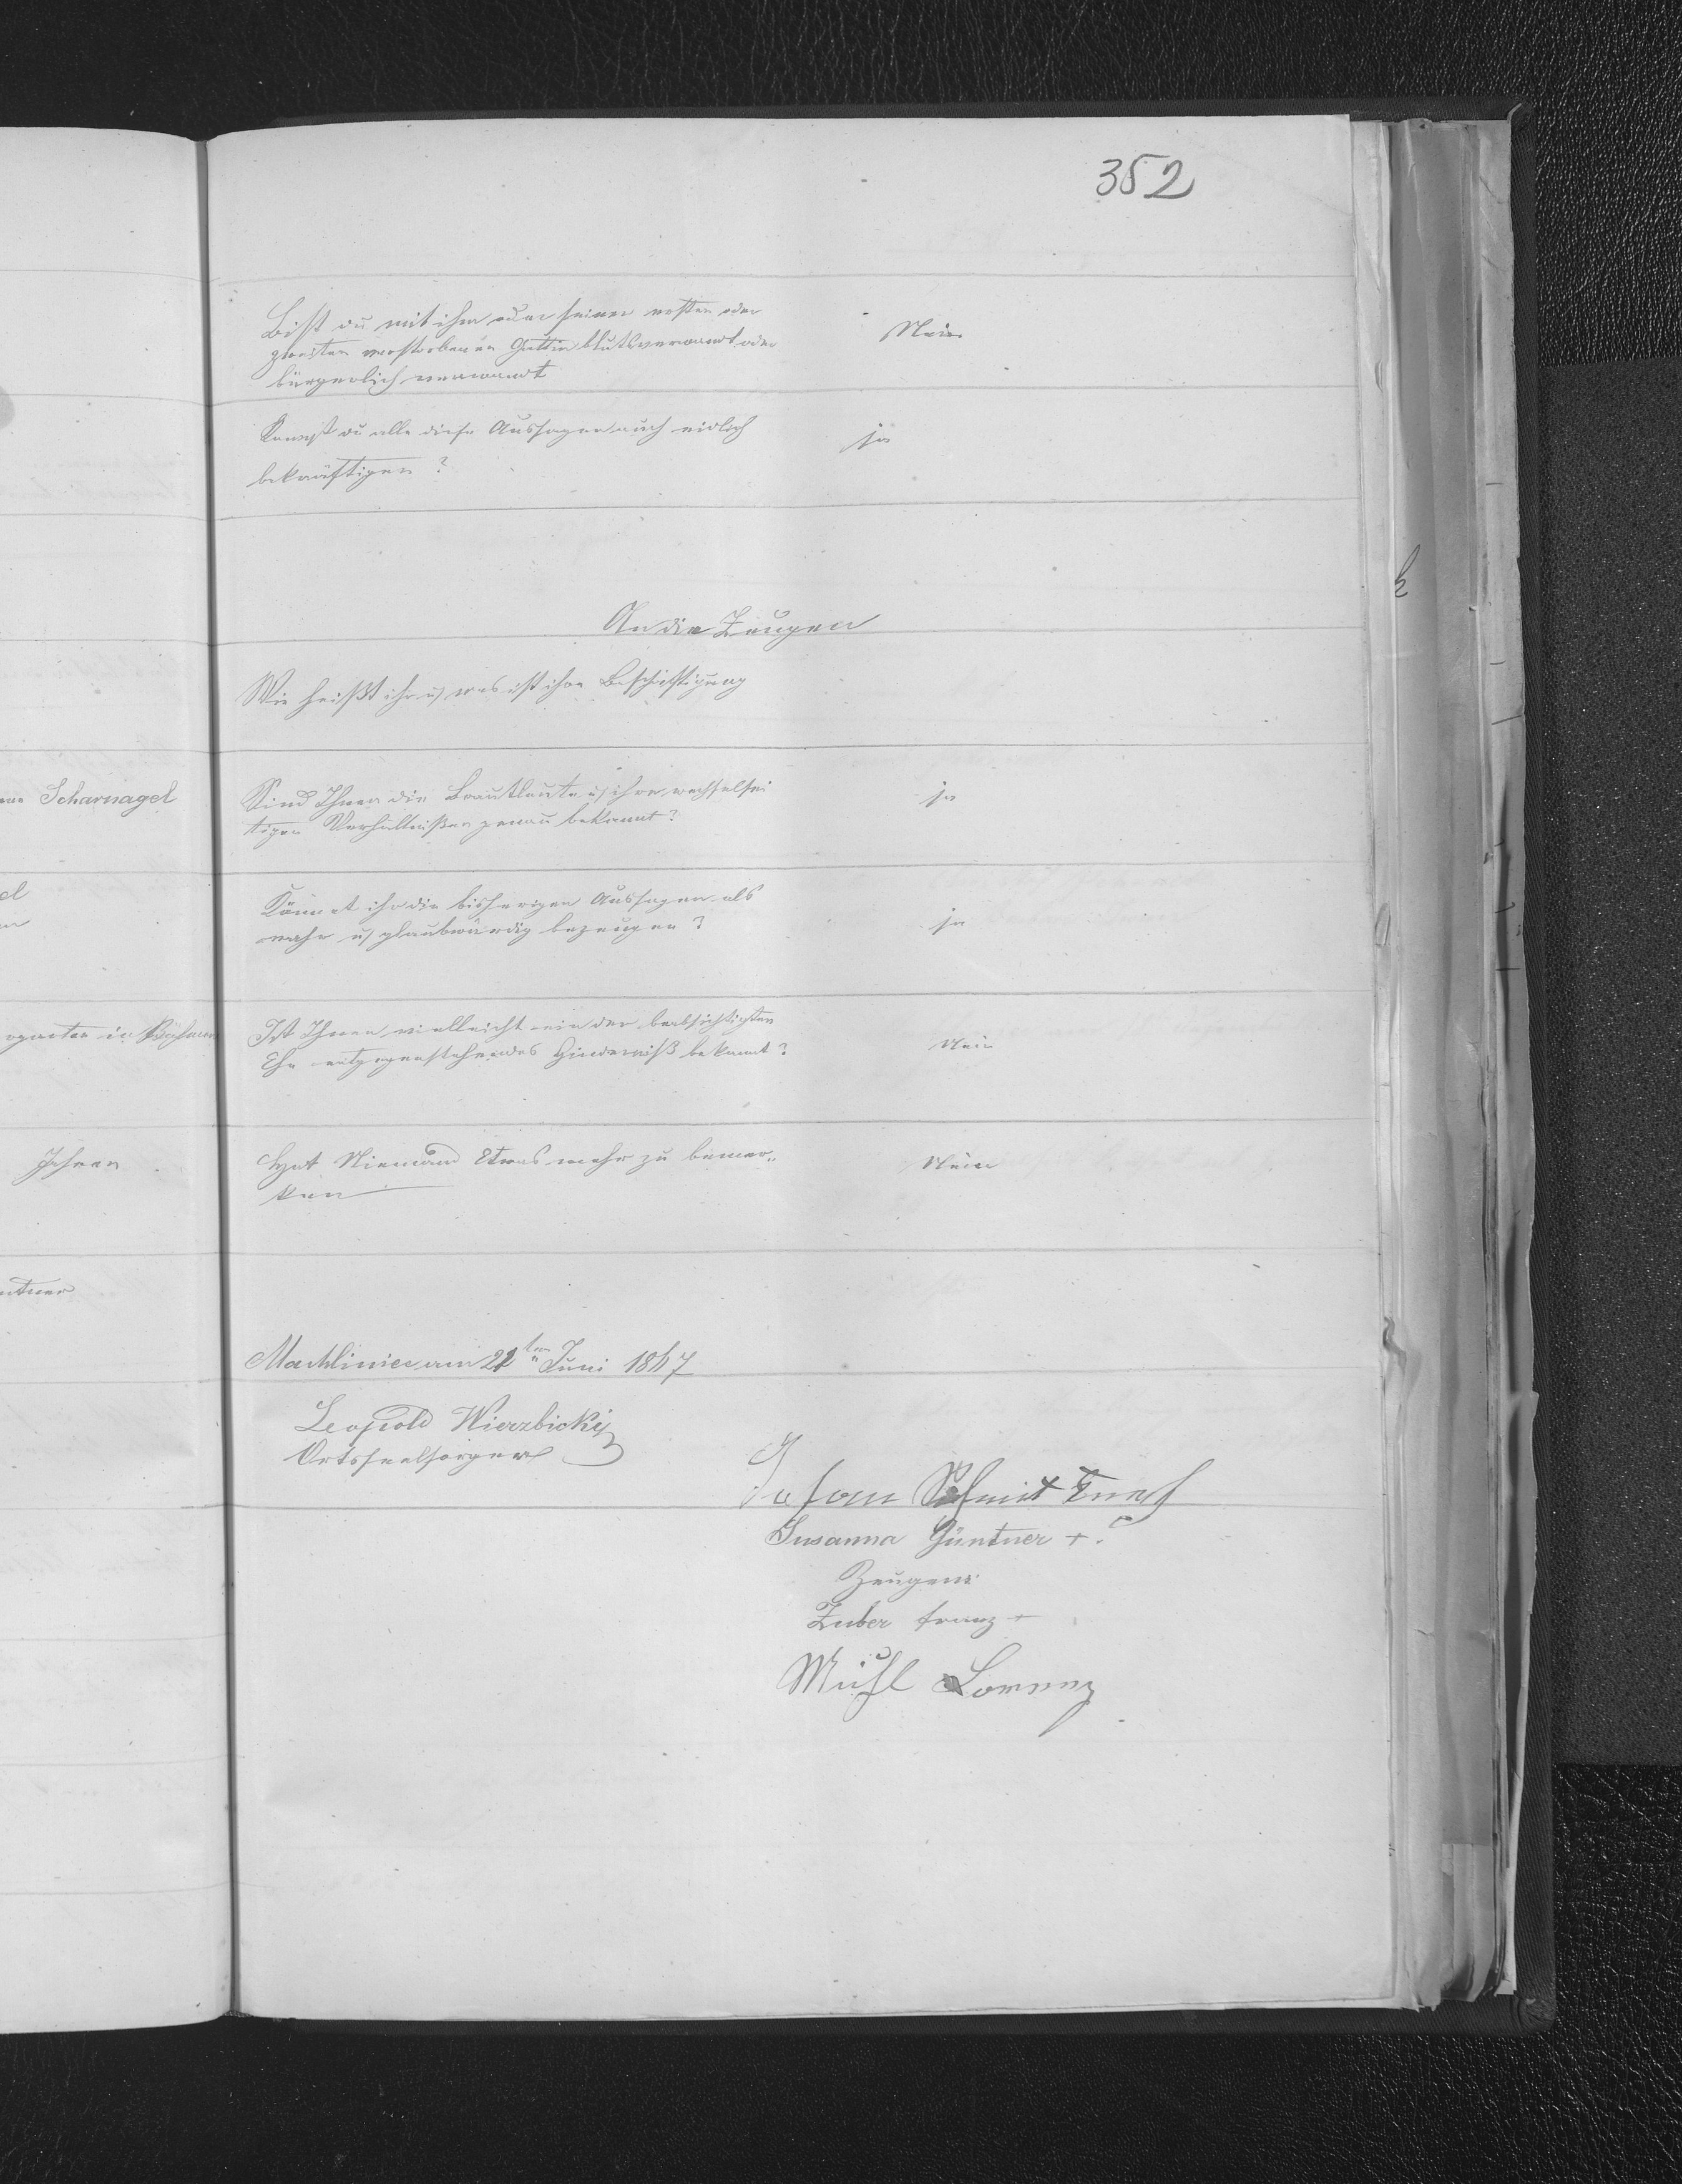 352
Bist du mit ihm oder seiner ersten oder
zweiten verstorbenen Gattin blutsverwandt oder
bürgerlich verwandt
Nein
Kannst du alle diese Aussagen auch eidlich
bekräftigen?
ja
An die Zeugen
Wie heißt ihr u. was ist ihre Beschäftigung
Scharnagel
Sind Ihnen die Brautleute u. ihre wechselsei
tigen Verhältnißen genau bekannt?
ja
Könnet ihr die bisherigen Aussagen als
wahr u. glaubwürdig bezeugen?
ja
in Böhmen
Ist Ihnen vielleicht ein der beabsichtigten
Ehe entgegenstehendes Hinderniß bekannt?
Nein
Jahren
Hat Niemand Etwas mehr zu bemer„
ken
Nein
Machliniec am 22ten Juni 1867
Leopold Wierzbicki
Ortsseelsorger
Schmit
Susanna Güntner +.
Zeugen:
Zuber Franz +
Mühl Lorenz